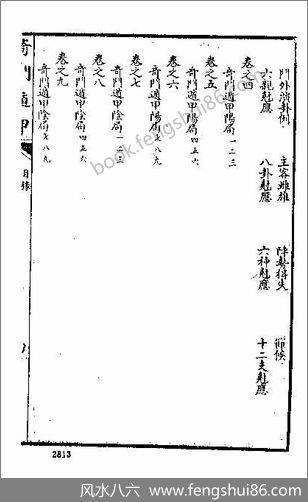 門外演卦例 主客雌雄 陣勢得失 節候
六親剋應 八卦剋應 六神剋應 十二支剋應
卷之四
奇門遁甲陽局一二三
卷之五
奇門遁甲陽局四五六
卷之六
奇門遁甲陽局七八九
卷之七
奇門遁甲陰局一二三
卷之八
奇門遁甲陰局四五六
卷之九
奇門遁甲陰局七八九
奇門遁甲 目錄
2813
book.fengshui86.com
风水八六 - www.fengshui86.com